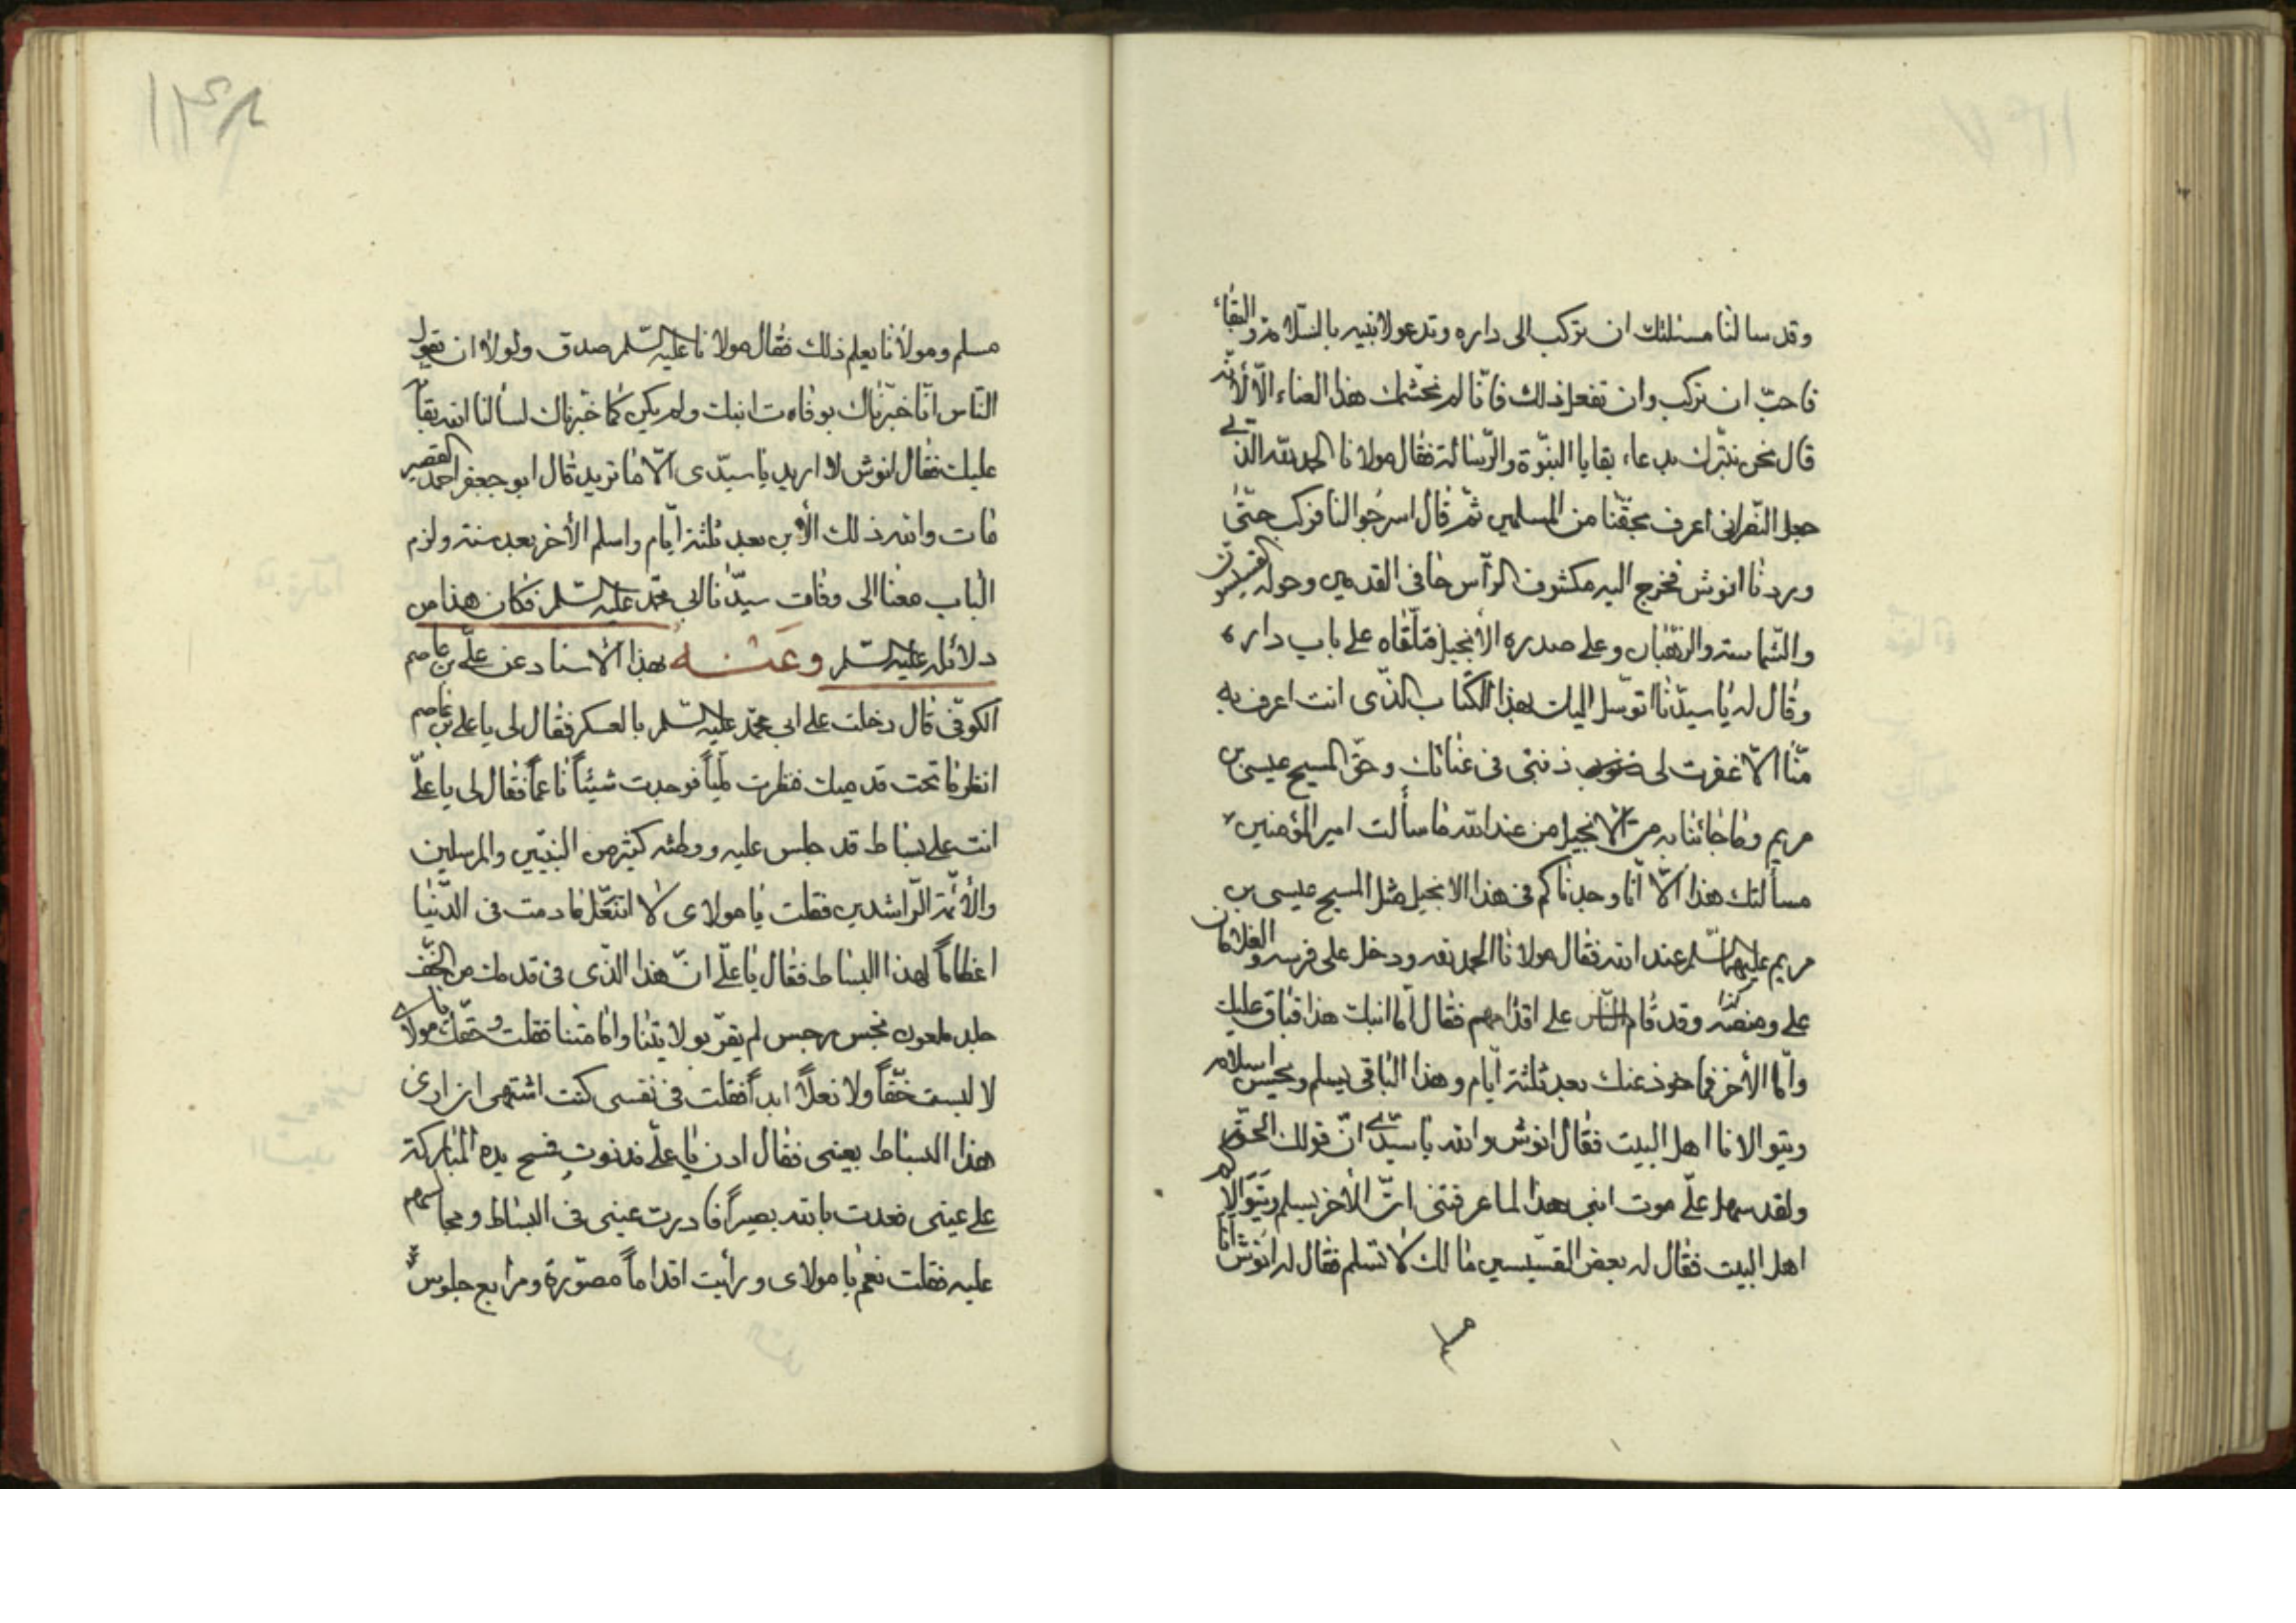 وقد سالنا مسئلتك ان تركب الى داره وتدعو لابنيه بالسّلامة والبقاء
فاحبّ ان تركب وان تفعل ذلك فانّا لم نجشّمك هذا العناء الّا لأنّه
قال نحن نتبّرك بدعاء بقايا النبوّة والرّسالة فقال مولانا الحمد لله الذي
جعل النّصراني اعرف بحقّنا من المسلمين ثمّ قال اسرجوا لنا فركب حتّى
وردنا انوش فخرج اليه مكشوف الرأس حافى القدمين وحوله القسيسون
والشّماسة والرّهبان وعلى صدره الأنجيل فتلقّاه على باب داره
وقال له يا سيدّنا اتوسّل اليك بهذا الكتاب الذّى انت اعرف به
منّا الّا غفرت لى ذنبى فى عنائك وحقّ المسيح عيسى بن
مريم وما جائنا به من الانجيل من عند الله ما سألت امير المؤمنين
مسألتك هذا الّا انّا وجدناكم فى هذا الانجيل مثل المسيح عيسى بن
مريم عليهما السّلم عند الله فقال مولانا الحمد لله ودخل على فرسه والغلامان
على ومنصّه كذا وقد قام النّاس على اقدامهم فقال امّا ابنك هذا فباق عليك
وامّا الأخر فمأخوذ عنك بعد ثلثة ايّام وهذا الباقى يسلم ويحسن اسلامه
ويتوالانا اهل البيت فقال انوش والله يا سيّدي انّ قولك الحقّ
ولقد سهل علّى موت ابنى هذا لما عرفتنى انّ الأخر يسلم ويتوّالاكم
اهل البيت فقال له بعض القسّيسين ما لك لا تسلم فقال له انوش انا
مسلم
مسلم ومولانا يعلم ذلك فقال مولانا عليه السّلم صدق ولولا ان يقول
النّاس انّا خبّرناك بوفاة ابنك ولم يكن كما خبّرناك لسألنا الله بقاه
عليك فقال انوش لا اريد يا سيّدى الّا ما تريد قال ابو جعفر احمد القصير
مات والله ذلك الأبن بعد ثلثة ايّام واسلم الأخر بعد سنة ولزم
الباب معنا الى وفات سيّدنا ابى محمّد عليه السّلم فكان هذا من
دلائله عليه السّلم وعنه بهذا الاسناد عن علّى بن عاصم
الكوفّى قال دخلت على ابى محمّد عليه السّلم بالعسكر فقال لى يا على بن عاصم
انظر ما تحت قدميك فنظرت مليّاً فوجدت شيئاً ناعماً فقال لى يا علّى
انت على بساط قد جلس عليه ووطئه كثير من النبيّين والمرسلين
والأئمّة الرّاشدين فقلت يا مولاى لا اتنعّل ما دمت فى الدّنيا
اعظاماً لهذا البساط فقال يا علّى انّ هذا الذّى فى قدمك من الخفّ
جلد ملعون نجس رجس لم يقرّ بولايتنا وامامتنا فقلت وحقّك يا مولاى
لا لبست خفّاً ولا نعلاً ابداً فقلت فى نفسى كنت اشتهى ان ارى
هذا البساط بعينى فقال ادن يا علّى فدنوت فمسح يده المباركة
على عينى فعدت بالله بصيراً فادرت عينى فى البساط ومجالسهم
عليه فقلت نعم يا مولاى ورأيت اقداماً مصوّرة ومرابع جلوس